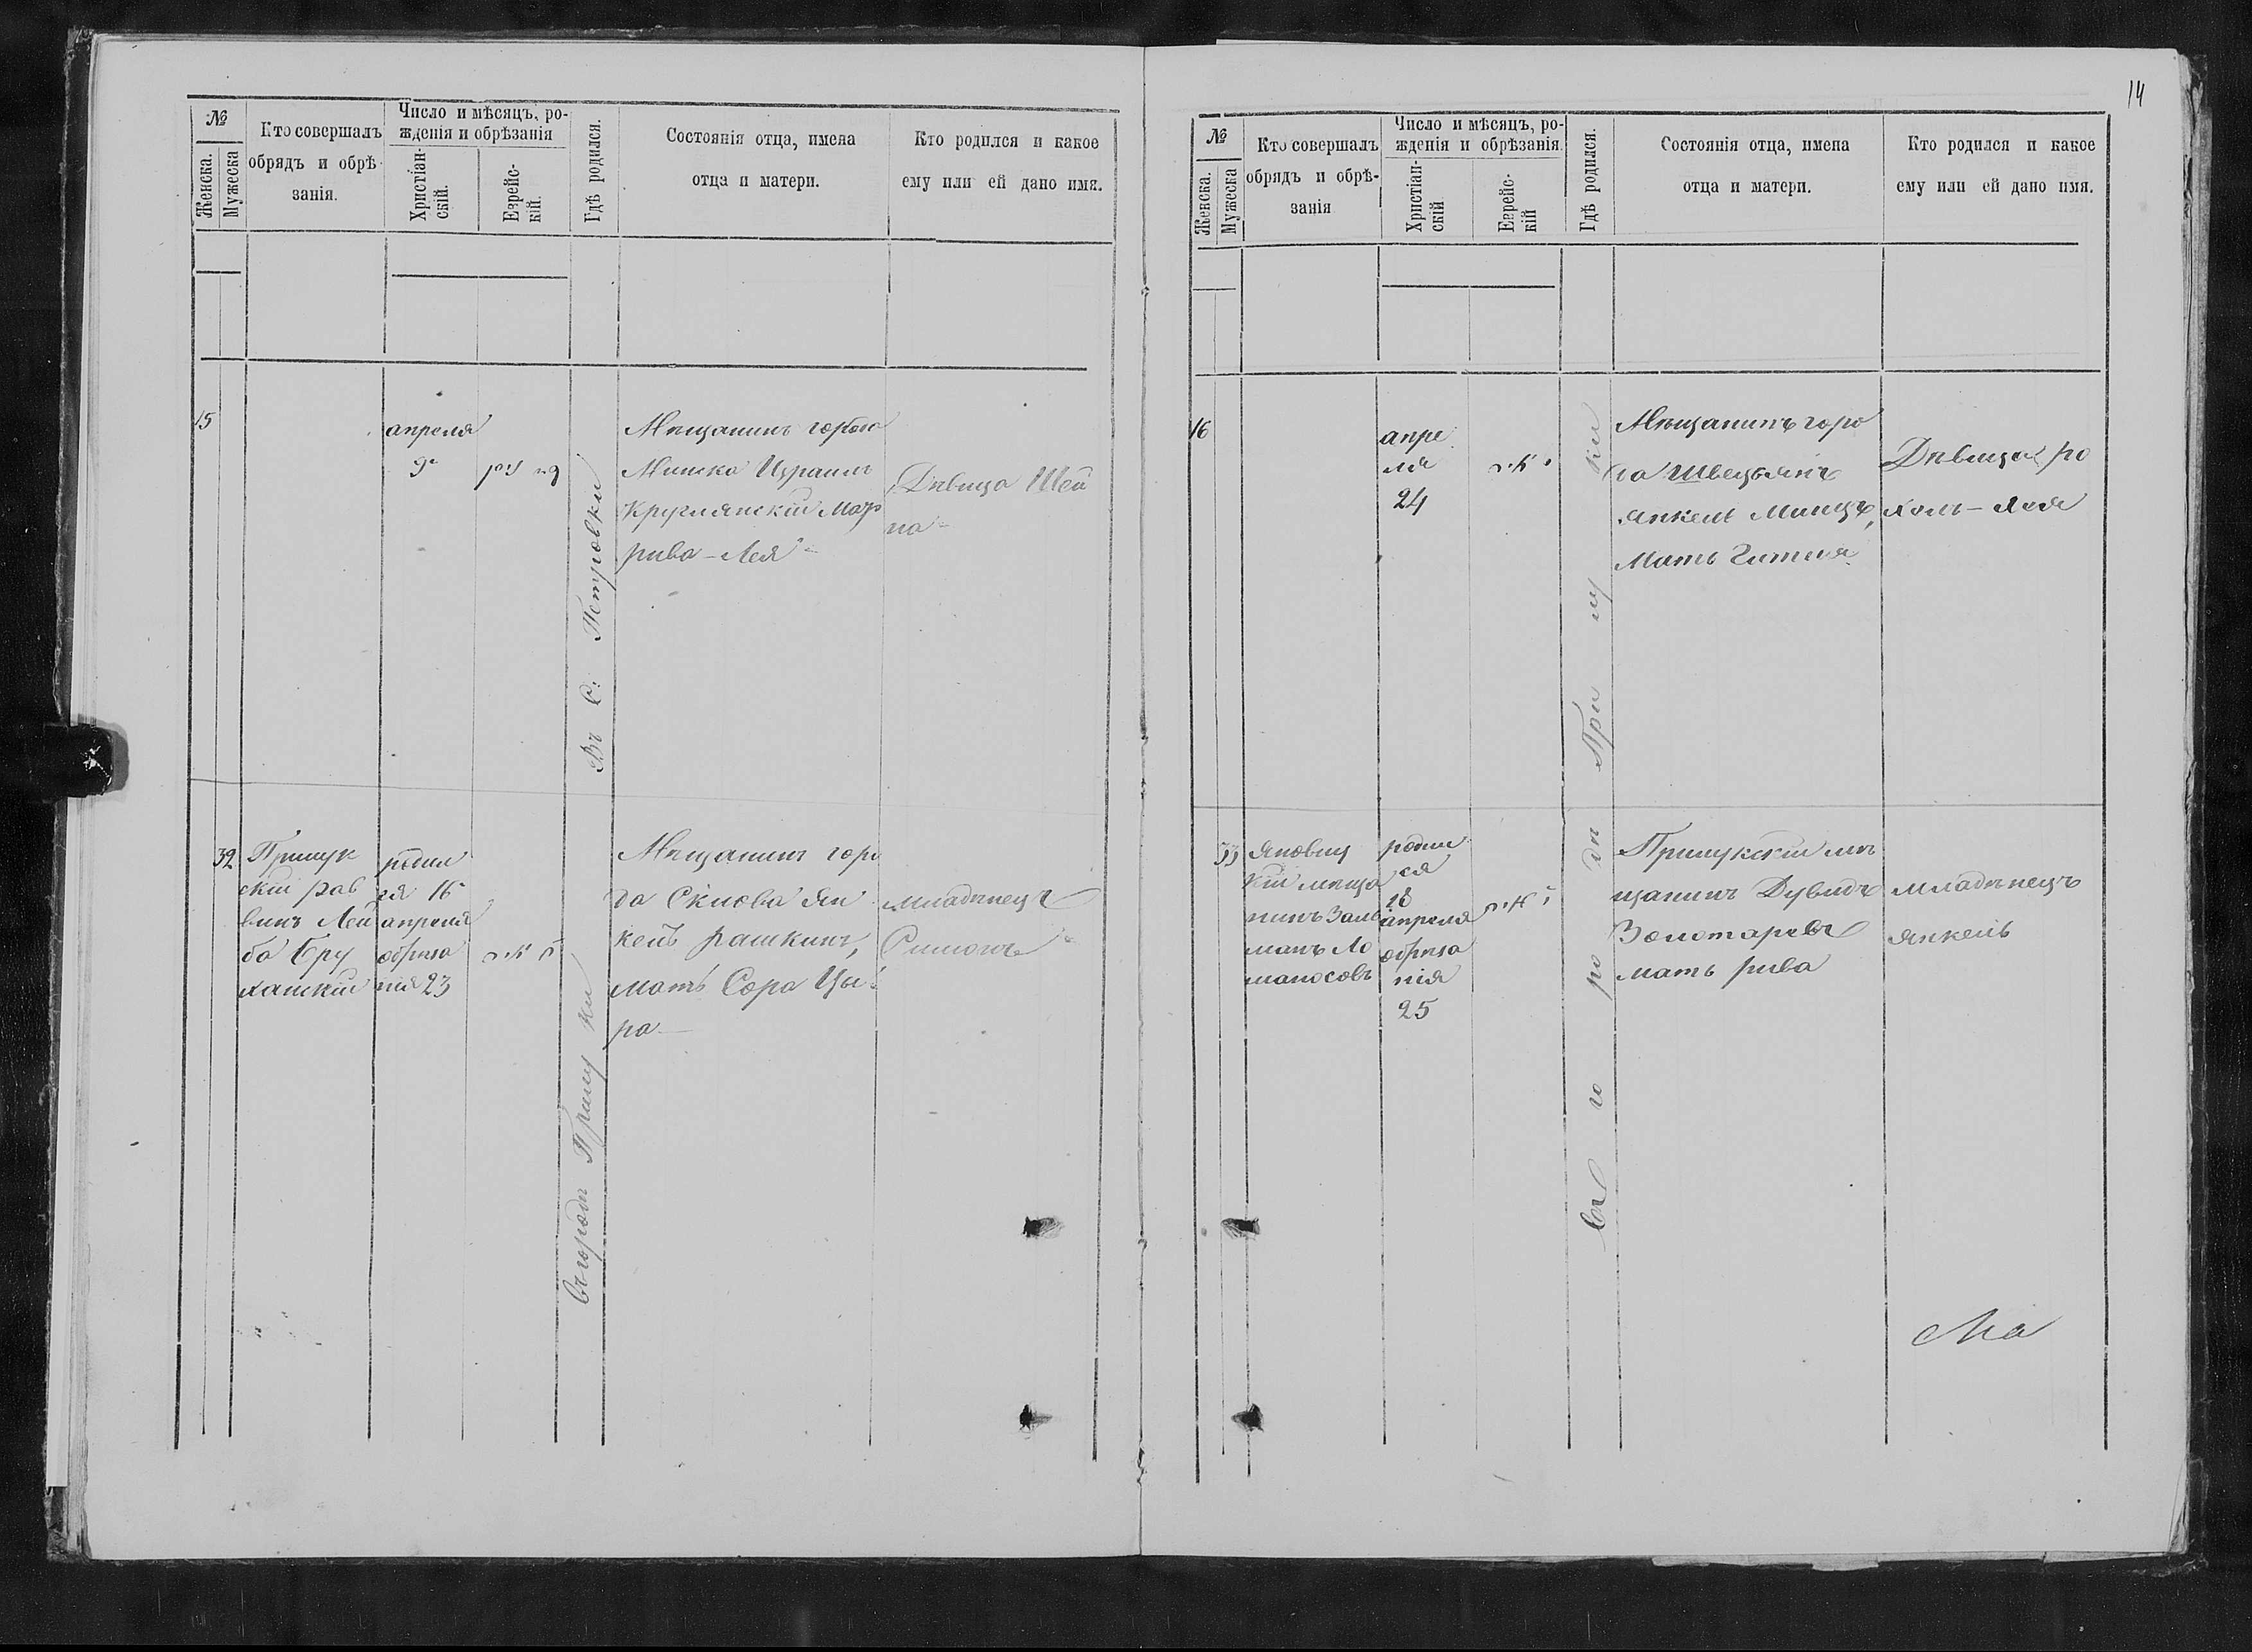 №
Женска.
Мужеска
Кто совершалъ
обрядъ и обрѣ-
занія.
Число и мѣсяцъ, ро-
жденія и обрѣзанія
Христіан-
скій.
Еврейс-
кій.
Гдѣ родился.
Состоянія отца, имена
отца и матери.
Кто родился и какое
ему или ей дано имя.
15
апреля
9
Въ С. Петровки
Мѣщанинъ города
Минска Израиль
Круглянскій Мать
Рива-Лея
Дѣвица Шей
на
32
Прилук
скій рав
винъ Лей
ба
родил
ся 16
апреля
обрѣза
нія 23
Въ городѣ Прилуки
Мѣщанинъ горо
да Ян
кель Рашкинъ,
мать Сора Цы
ра
младѣнецъ
14
№
Женска.
Мужеска
Кто совершалъ
обрядъ и обрѣ-
занія
Число и мѣсяцъ, ро-
жденія и обрѣзанія.
Христіан-
скій
Еврейс-
кій
Гдѣ родился.
Состоянія отца, имена
отца и матери.
Кто родился и какое
ему или ей дано имя.
16
апре
ля
24
Въ го ро дѣ При лу ки
Мѣщанинъ горо
да Швецьянъ
Янкель Минцъ,
Мать Гитля
Дѣвица Ро
холь-Лея
33
Яновиц
кій мѣща
нинъ Зал
манъ Ло
маносовъ
родил
ся
18
апреля
обрѣза
нія
25
Прилукскій мѣ
щанинъ Дувидъ
Золотаревъ
мать Рива
младѣнецъ
Янкель